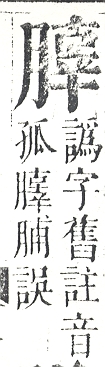 譌字舊註音
孤脯誤